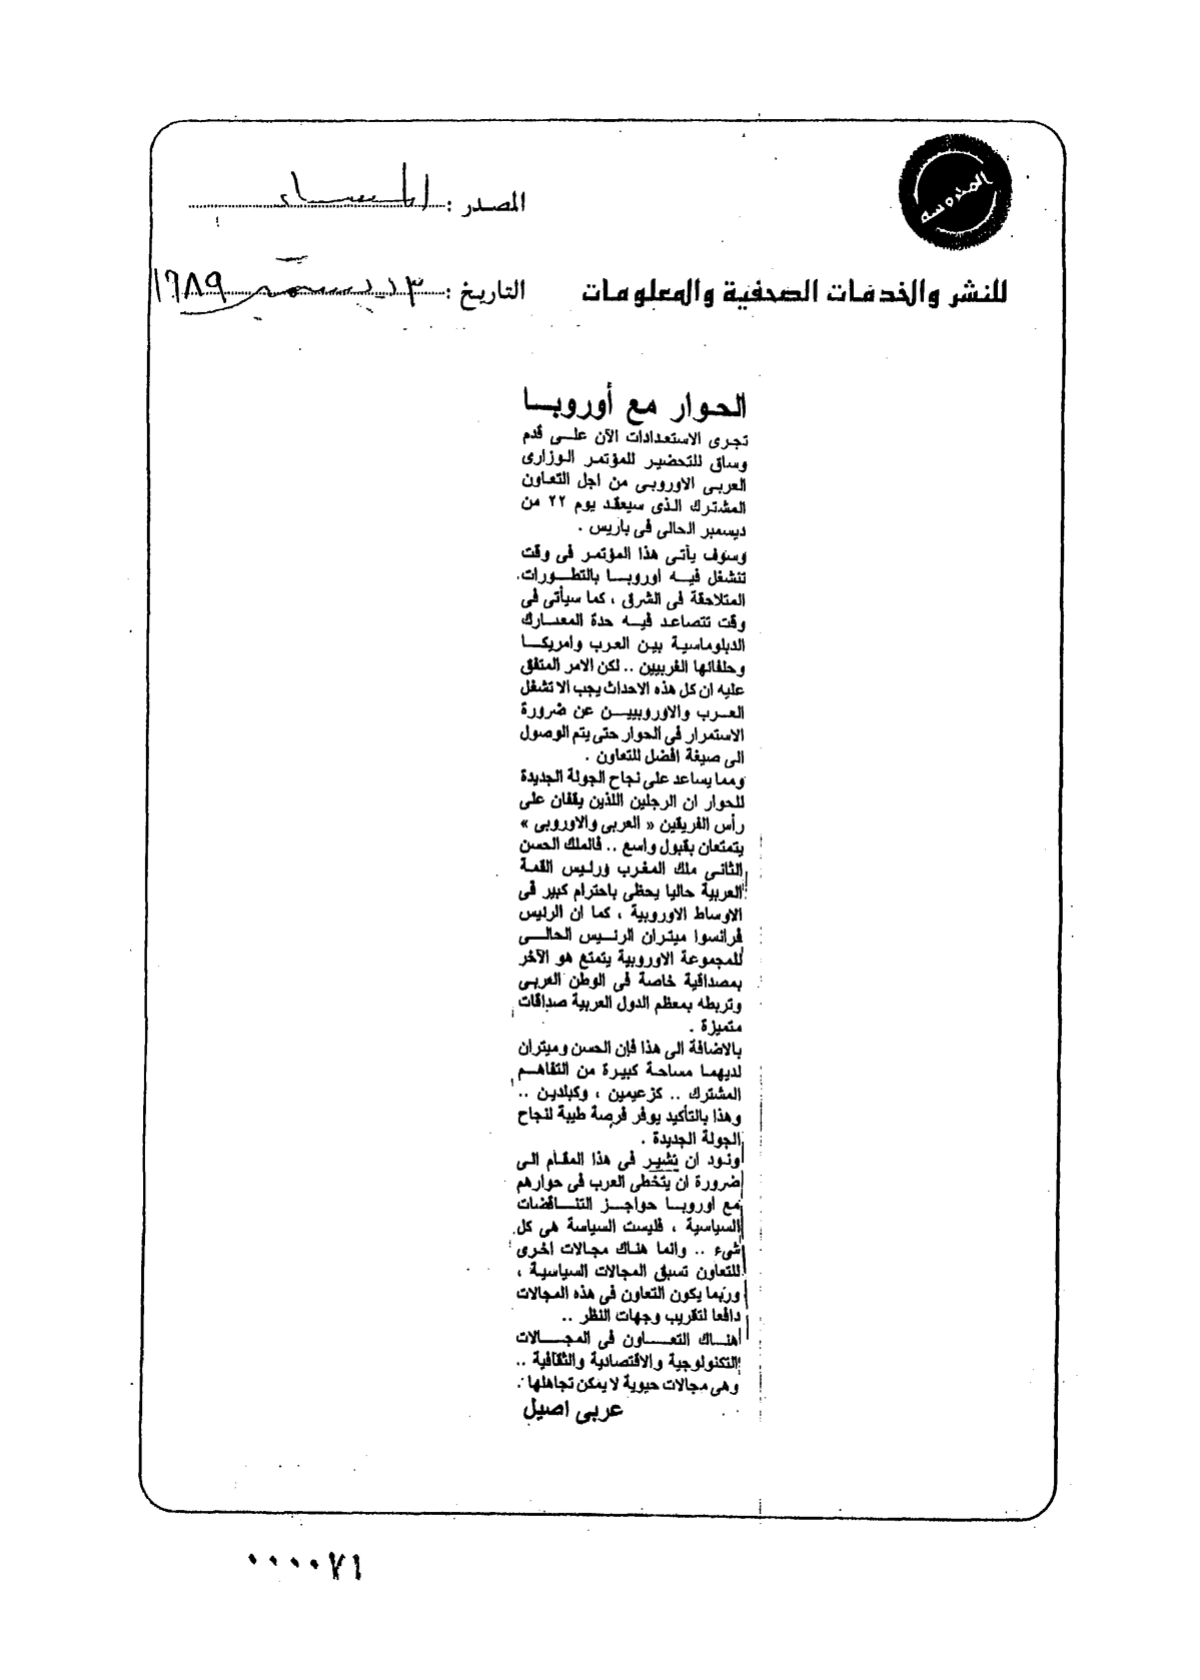 المحروسة
المصدر : المساء
للنشر والخدمات الصحفية والمعلومات
التاريخ : ١٣ ديسمبر ١٩٨٩
الحوار مع أوروبا
تجرى الاستعدادات الآن على قدم
وساق للتحضير للمؤتمر الوزارى
العربى الاوروبى من اجل التعاون
المشترك الذى سيعقد يوم ٢٢ من
ديسمبر الحالى فى باريس .
وسوف يأتى هذا المؤتمر فى وقت
تنشغل فيه اوروبا بالتطورات
المتلاحقة فى الشرق ، كما سيأتى فى
وقت تتصاعد فيه حدة المعارك
الدبلوماسية بين العرب وامريكا
وحلفائها الغربيين .. لكن الامر المتفق
عليه ان كل هذه الاحداث يجب الا تشغل
العرب والاوروبيين عن ضرورة
الاستمرار فى الحوار حتى يتم الوصول
الى صيغة افضل للتعاون .
ومما يساعد على نجاح الجولة الجديدة
للحوار ان الرجلين اللذين يقفان على
رأس الفريقين « العربى والاوروبى »
يتمتعان بقبول واسع .. فالملك الحسن
الثانى ملك المغرب ورئيس القمة
العربية حاليا يحظى باحترام كبير فى
الاوساط الاوروبية ، كما ان الرئيس
فرانسوا ميتران الرئيس الحالى
للمجموعة الاوروبية يتمتع هو الآخر
بمصداقية خاصة فى الوطن العربى
وتربطه بمعظم الدول العربية صداقات
متميزة .
بالاضافة الى هذا فإن الحسن وميتران
لديهما مساحة كبيرة من التفاهم
المشترك .. كزعيمين ، وكبلدين ..
وهذا بالتأكيد يوفر فرصة طيبة لنجاح
الجولة الجديدة .
ونود ان نشير فى هذا المقام الى
ضرورة ان يتخطى العرب فى حوارهم
مع اوروبا حواجز التناقضات
السياسية ، فليست السياسة هى كل
شىء .. وانما هناك مجالات اخرى
للتعاون تسبق المجالات السياسية ،
وربما يكون التعاون فى هذه المجالات
دافعا لتقريب وجهات النظر ..
هناك التعاون فى المجالات
التكنولوجية والاقتصادية والثقافية ..
وهى مجالات حيوية لا يمكن تجاهلها .
عربى اصيل
٠٠٠٠٧١